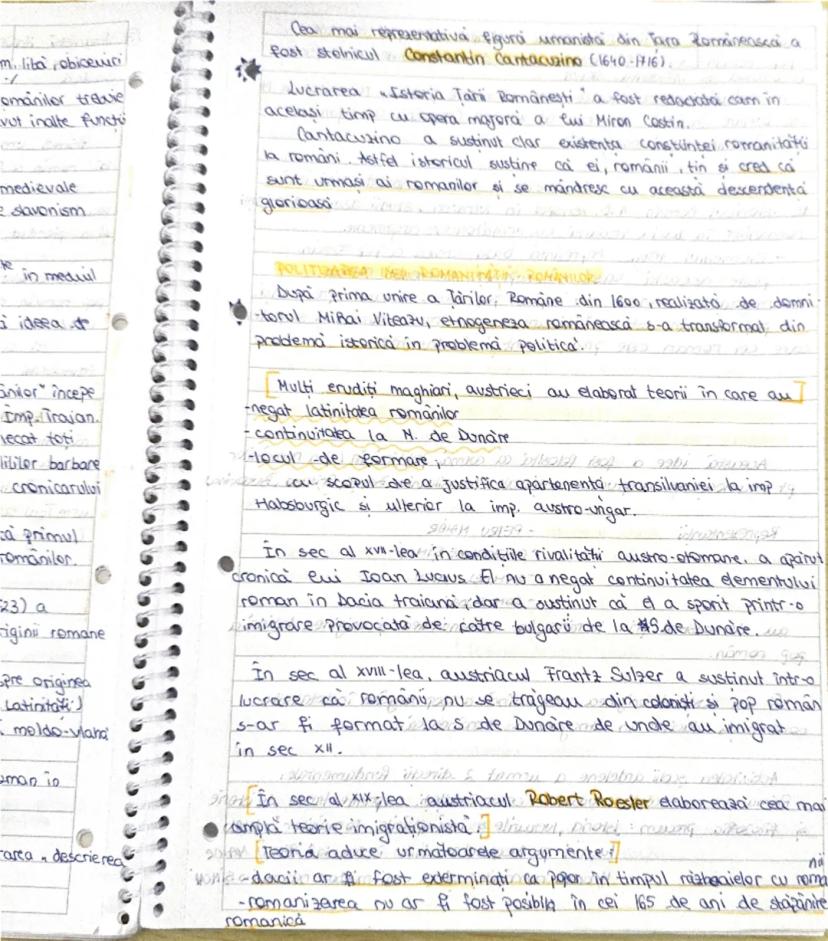 m. libă, obiceiuri
omânilor trebuie
vut inalte funcții
medievale
e slavonism
te in mediul
i ideea
ânilor" începe
Imp. Traian.
lecat toti
litiilor barbare
cronicarului
că primul
românilor.
23) a
iginii romane
spre originea
Latinitații)
moldo-vlahă
oman in
rarea "descrierea
Cea mai reprezentativă figură umanistă din Țara Românească a
fost stolnicul Constantin Cantacuzino (1640-1716).
Lucrarea "Istoria Țării Românești" a fost redactată cam în
același timp cu opera majoră a lui Miron Costin.
Cantacuzino a susținut clar existența conștiinței romanității
la români. Astfel istoricul susține că ei, românii, țin și cred că
sunt urmași ai romanilor și se mândresc cu această descendență
glorioasă
POLITIZAREA IDEII ROMANITĂȚII ROMÂNILOR
După prima unire a Țărilor Române din 1600, realizată de domni-
-torul Mihai Viteazu, etnogeneza românească s-a transformat din
problemă istorică in problemă politică.
[Mulți erudiți maghiari, austrieci au elaborat teorii în care au]
-negat latinitatea românilor
-continuitatea la N. de Dunăre
-locul de formare,
cu scopul de a justifica apartenența transilvaniei la imp
Habsburgic și ulterior la imp. austro-ungar.
În sec al XVII-lea, în condițiile rivalității austro-otomane, a apărut
cronică lui Ioan Lucius. El nu a negat continuitatea elementului
roman în Dacia traiană, dar a susținut că el a sporit printr-o
imigrare provocată de către bulgarii de la S de Dunăre.
În sec al XVIII-lea, austriacul Frantz Sulzer a susținut într-o
lucrare că românii nu se trăgeau din coloniști și pop român
s-ar fi format la S de Dunăre de unde au imigrat
în sec XII.
[În sec al XIX-lea austriacul Robert Roesler elaborează cea mai
amplă teorie imigraționistă.]
[Teoria aduce următoarele argumente:]
-dacii ar fi fost exterminați ca popor în timpul războaielor cu romanii
-romanizarea nu ar fi fost posibilă în cei 165 de ani de stăpânire
romanică